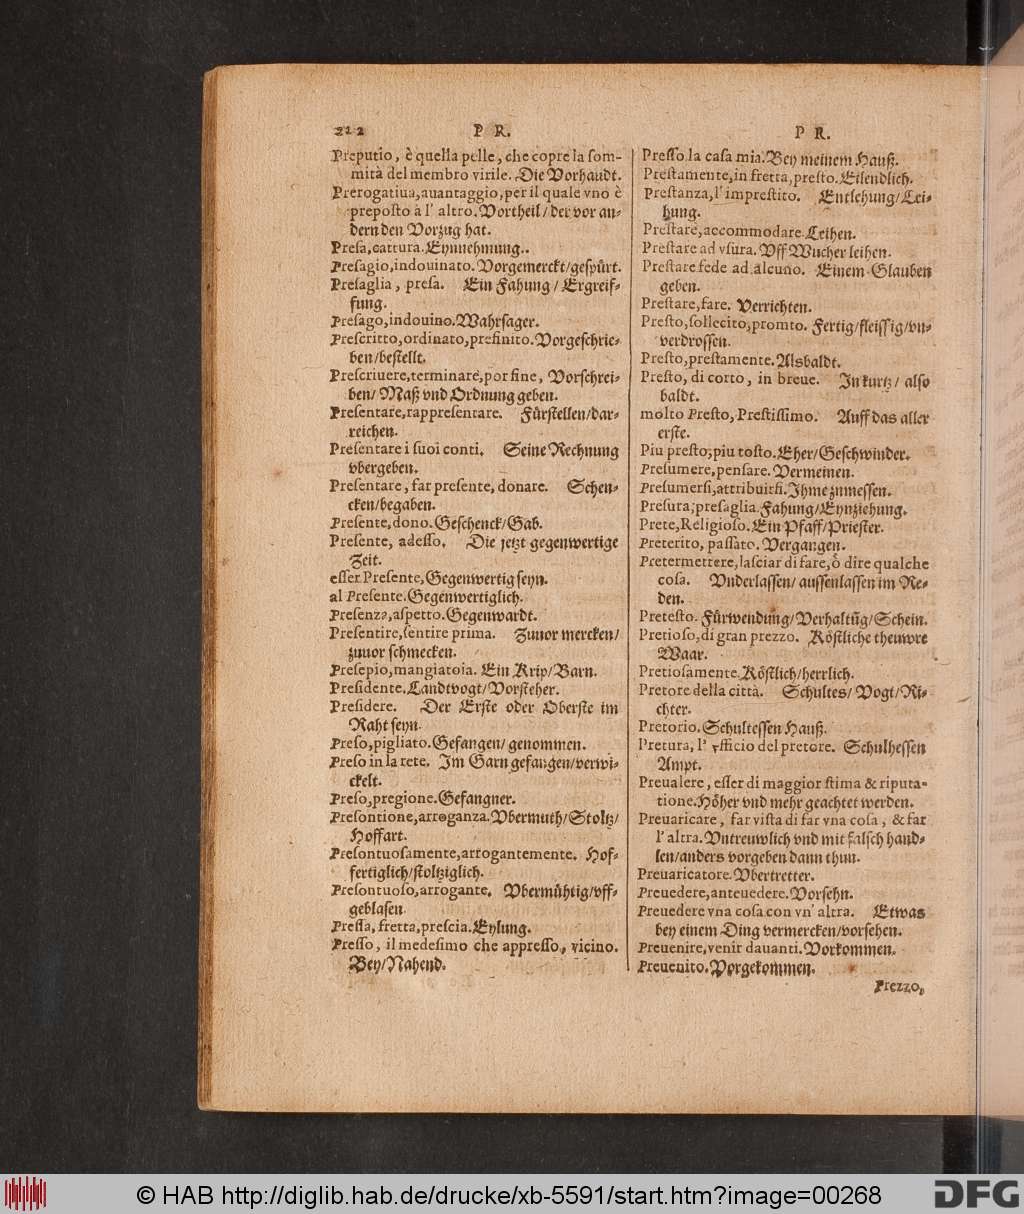 212 P R.
Preputio, è quella pelle, che copre la som-
mità del membro virile. Die Vorhaudt.
Prerogatiua, auantaggio, per il quale vno è
preposto à l' altro. Vortheil / der vor an-
dern den Vorzug hat.
Presa, cattura. Eynnehmung..
Presagio, indouinato. Vorgemerckt/gespůrt.
Presaglia, presa. Ein Fahung / Ergreif-
fung.
Presago, indouino. Wahrsager.
Prescritto, ordinato, prefinito. Vorgeschrie-
ben/bestellt.
Prescriuere, terminare, por fine, Vorschrei-
ben/ Maß vnd Ordnung geben.
Presentare, rappresentare. Fůrstellen/dar-
reichen.
Presentare i suoi conti. Seine Rechnung
vbergeben.
Presentare, far presente, donare. Schen-
cken/begaben.
Presente, dono. Geschenck/Gab.
Presente, adesso. Die jetzt gegenwertige
Zeit.
esser Presente, Gegenwertig seyn.
al Presente. Gegenwertiglich.
Presenza, aspetto. Gegenwardt.
Presentire, sentire prima. Zuuor mercken/
zuuor schmecken.
Presepio, mangiatoia. Ein Krip/Barn.
Presidente. Landtvogt/Vorsteher.
Presidere. Der Erste oder Oberste im
Raht seyn.
Preso, pigliato. Gefangen/ genommen.
Preso in la rete. Im Garn gefangen/verwi-
ckelt.
Preso, pregione. Gefangner.
Presontione, arroganza. Vbermuth/Stoltz/
Hoffart.
Presontuosamente, arrogantemente. Hof-
fertiglich/stoltziglich.
Presontuoso, arrogante. Vbermühtig/vff-
geblasen.
Pressa, fretta, prescia. Eylung.
Presso, il medesimo che appresso, vicino.
Bey/Nahend.
P R.
Presso la casa mia. Bey meinem Hauß.
Prestamente, in fretta, presto. Eilendlich.
Prestanza, l' imprestito. Entlehung/Lei-
hung.
Prestare, accommodare. Leihen.
Prestare ad vsura. Vff Wucher leihen.
Prestare fede ad alcuno. Einem Glauben
geben.
Prestare, fare. Verrichten.
Presto, sollecito, promto. Fertig/fleissig/vn-
verdrossen.
Presto, prestamente. Alsbaldt.
Presto, di corto, in breue. In kurtz / also
baldt.
molto Presto, Prestissimo. Auff das aller
erste.
Piu presto, piu tosto. Eher/Geschwinder.
Presumere, pensare. Vermeinen.
Presumersi, attribuirsi. Ihme zumessen.
Presura, presaglia. Fahung/Eynziehung.
Prete, Religioso. Ein Pfaff/Priester.
Preterito, passato. Vergangen.
Pretermettere, lasciar di fare, ò dire qualche
cosa. Vnderlassen/ aussenlassen im Re-
den.
Pretesto. Fůrwendung/Verhaltũg/Schein.
Pretioso, di gran prezzo. Kőstliche theuwre
Waar.
Pretiosamente. Kőstlich/herrlich.
Pretore della città. Schultes/ Vogt/Ri-
chter.
Pretorio. Schultessen Hauß.
Pretura, l' vfficio del pretore. Schulhessen
Ampt.
Preualere, esser di maggior stima & riputa-
tione. Hőher vnd mehr geachtet werden.
Preuaricare, far vista di far vna cosa, & far
l' altra. Vntreuwlich vnd mit falsch hand-
len/anders vorgeben dann thun.
Preuaricatore. Vbertretter.
Preuedere, anteuedere. Vorsehn.
Preuedere vna cosa con vn' altra. Etwas
bey einem Ding vermercken/vorsehen.
Preuenire, venir dauanti. Vorkommen.
Preuenito. Vorgekommen.
Prezzo,
© HAB http://diglib.hab.de/drucke/xb-5591/start.htm?image=00268
DFG